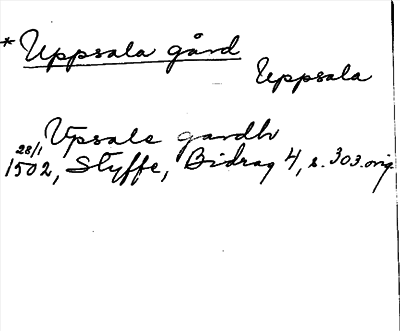 * Uppsala gård
Uppsala
Vpsale gardh
28/1
1502, Styffe, Bidrag 4, s. 303. orig